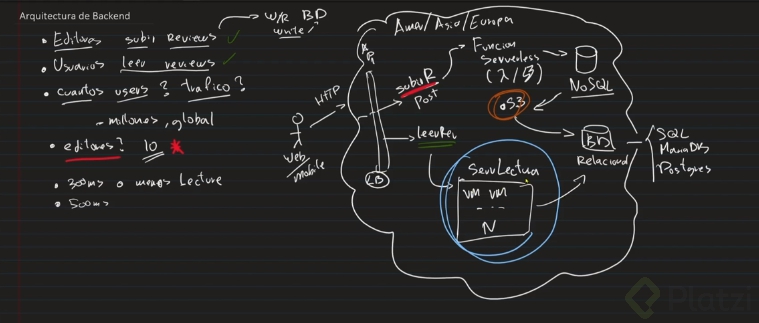 Arquitectura de Backend
• Editores subir Reviews ✓
• Usuarios leer reviews ✓
• cuantos users? trafico?
- millones, global
• editores? 10
• 300ms o menos Lectura
• 500ms
W/R BD
write
Amer/Asia/Europa
API
LB
HTTP
web/
mobile
subirR
Post
leerRev
Funcion
Serverless
NoSQL
S3
BD
Relacional
SQL
MariaDB
Postgres
ServLectura
VM VM
- - -
N
Platzi